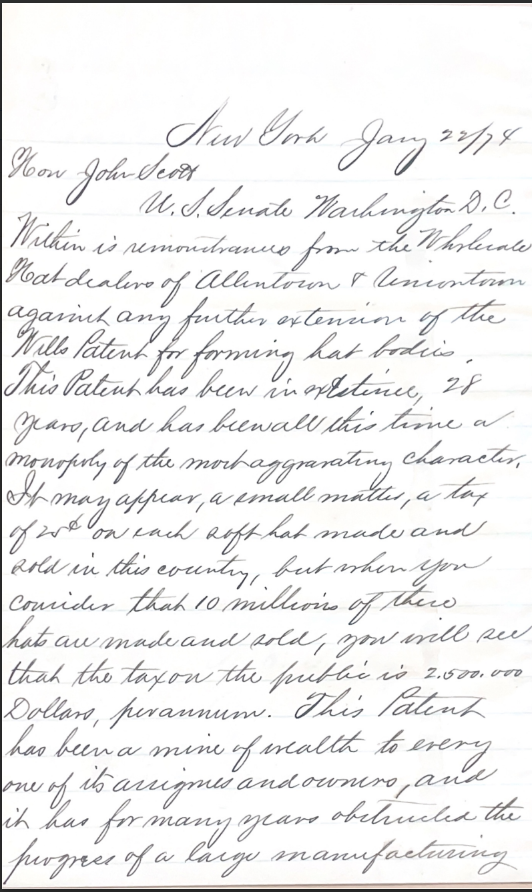 New York Jany 22/74
Hon John Scott
U. S. Senate Washington D. C.
Within is remonstrances from the Wholesale
Hat dealers of Allentown & Uniontown
against any further extension of the
Wells Patent for forming hat bodies.
This Patent has been in existince, 28
years, and has been all this time a
monopoly of the most aggravating character.
It may appear, a small matter, a tax
of 25¢ on each soft hat made and
sold in this country, but when you
consider that 10 millions of these
hats are made and sold, you will see
that the tax on the public is 2.500.000
Dollars, per annum. This Patent
has been a mine of wealth to every
one of its assignees and owners, and
it has for many years obstructed the
progress of a large manufacturing